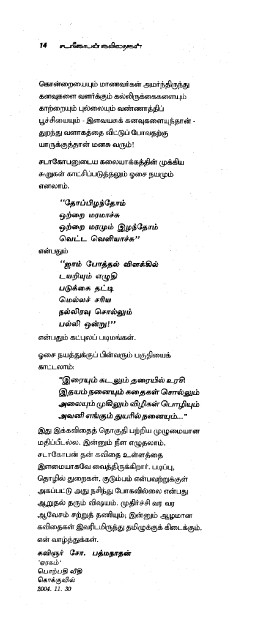 14 சடாகோபன் கவிதைகள்
கொன்றையையும் மாணவர்கள் அமர்ந்திருந்து
கனவுகளை வளர்க்கும் கல்லிருக்கைகளையும்
காற்றையும் புல்லையும் வண்ணாத்திப்
பூச்சியையும் - இளவயசுக் கனவுகளையுந்தான் -
துறந்து வளாகத்தை விட்டுப் போவதற்கு
யாருக்குத்தான் மனசு வரும்!
சடாகோபனுடைய கலையாக்கத்தின் முக்கிய
கூறுகள் காட்சிப்படுத்தலும் ஓசை நயமும்
எனலாம்.
"தோப்பிழந்தோம்
ஒற்றை மரமாச்சு
ஒற்றை மரமும் இழந்தோம்
வெட்ட வெளியாச்சு"
என்பதும்
"ஜாம் போத்தல் விளக்கில்
டயறியும் எழுதி
படுக்கை தட்டி
மெல்லச் சரிய
நல்லிரவு சொல்லும்
பல்லி ஒன்று!"
என்பதும் கட்புலப் படிமங்கள்.
ஓசை நயத்துக்குப் பின்வரும் பகுதியைக்
காட்டலாம்:
"இரையும் கடலும் தரையில் உரசி
இதயம் நனையும் கதைகள் சொல்லும்
அலையும் முகிலும் விழிகள் பொழியும்
அவனி எங்கும் துயரில் நனையும்..."
இது இக்கவிதைத் தொகுதி பற்றிய முழுமையான
மதிப்பீடல்ல. இன்னும் நீள எழுதலாம்.
சடாகோபன் தன் கவிதை உள்ளத்தை
இளமையாகவே வைத்திருக்கிறார். படிப்பு,
தொழில் துறைகள், குடும்பம் என்பவற்றுக்குள்
அகப்பட்டு அது நசிந்து போகவில்லை என்பது
ஆறுதல் தரும் விஷயம். முதிர்ச்சி வர வர
ஆவேசம் சற்றுத் தணியும்; இன்னும் ஆழமான
கவிதைகள் இவரிடமிருந்து தமிழுக்குக் கிடைக்கும்.
என் வாழ்த்துக்கள்.
கவிஞர் சோ. பத்மநாதன்
பொற்பதி வீதி
கொக்குவில்
2004. 11. 30